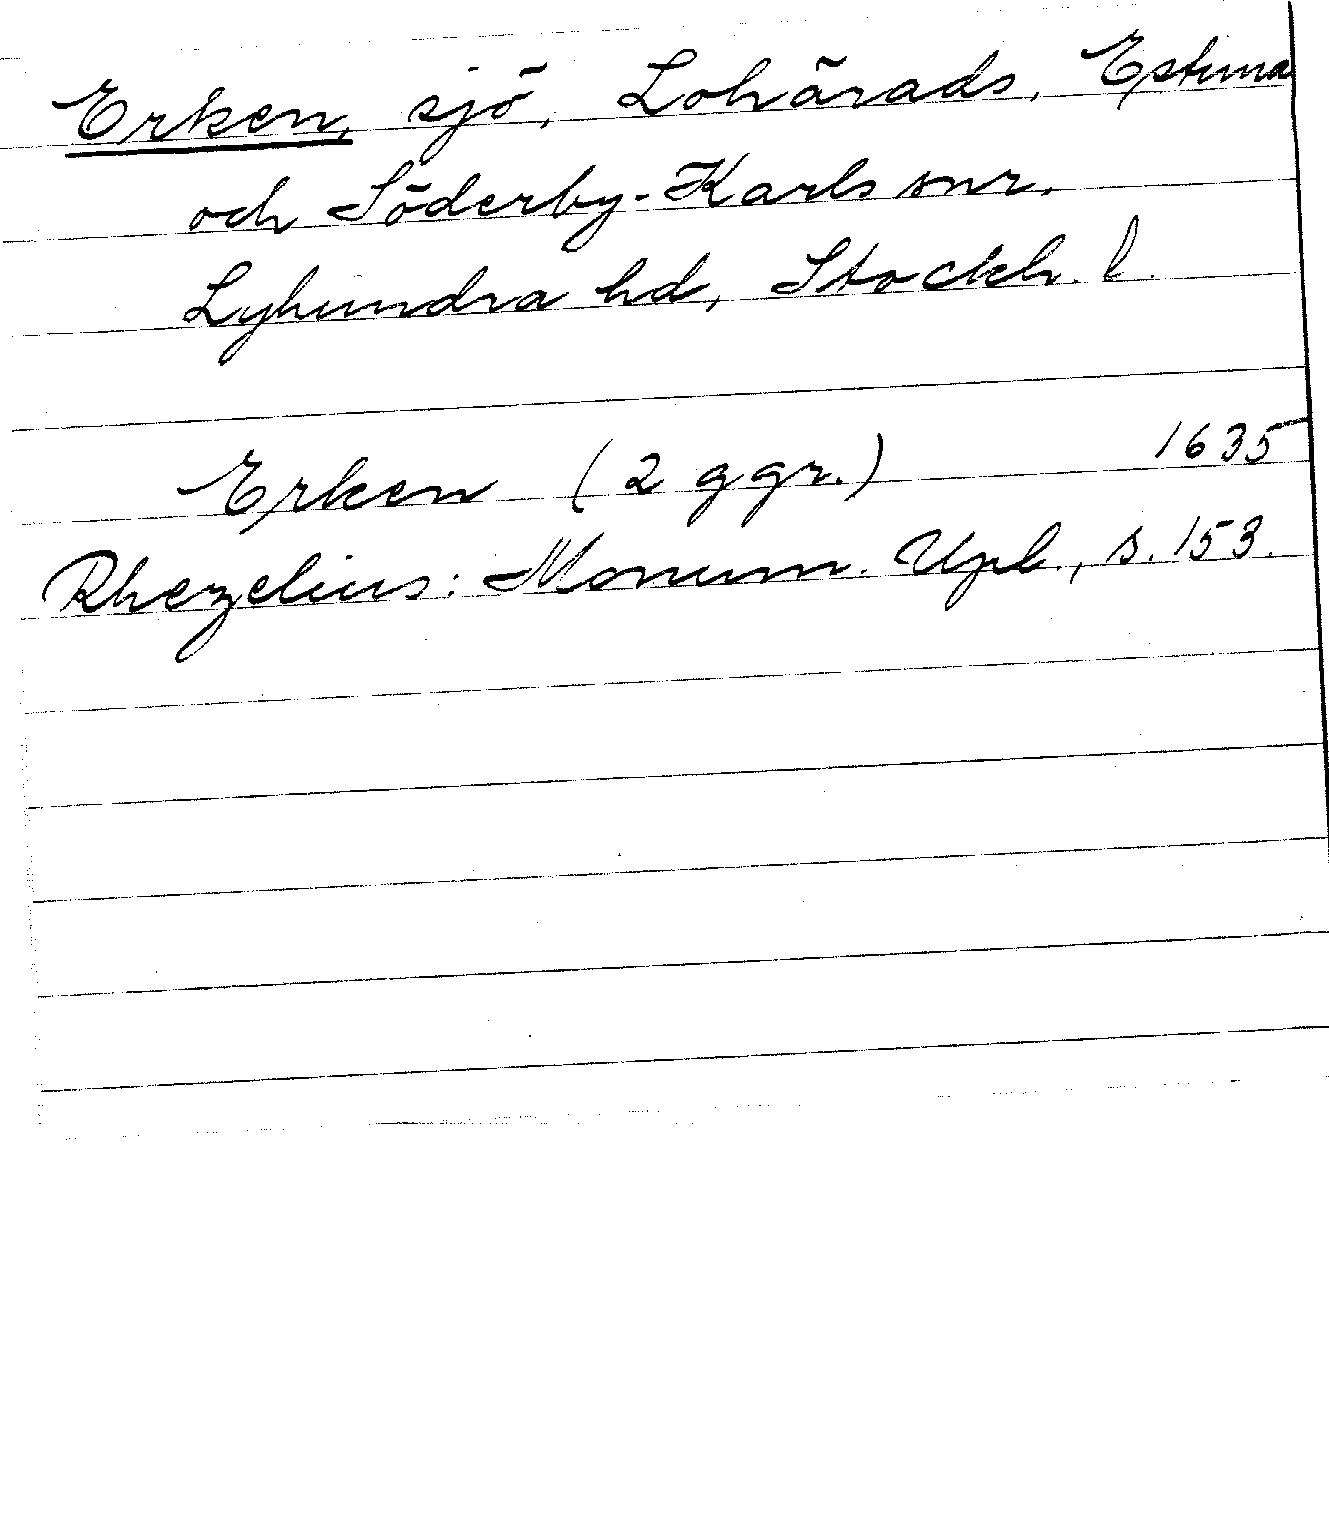 Erken, sjö, Lohärads, Estuna
och Söderby-Karls snr.
Lyhundra hd, Stockh. l.
Erken (2 ggr.) 1635
Rhezelius: Monum. Upl., s. 153.